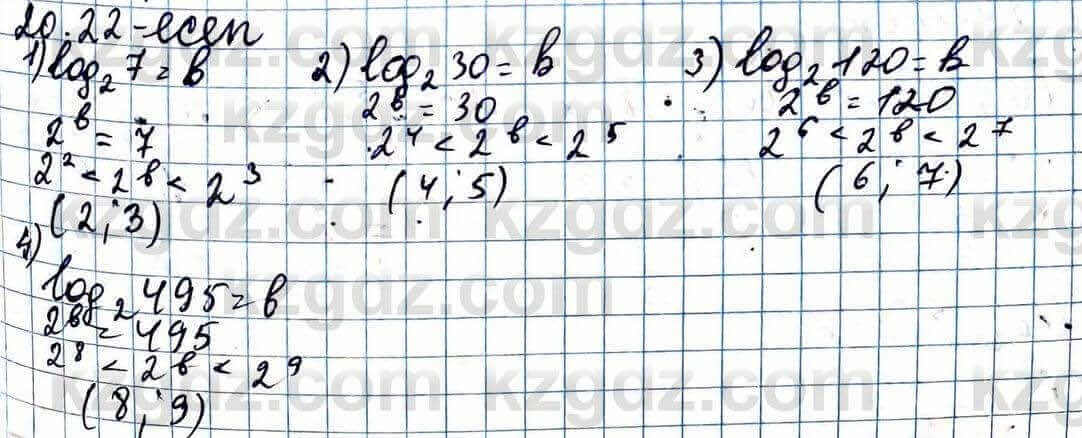 20.22-есеп
1) log₂7=b
2^b = 7
2² < 2^b < 2³
(2; 3)
2) log₂30=b
2^b = 30
2⁴ < 2^b < 2⁵
(4; 5)
3) log₂120=b
2^b = 120
2⁶ < 2^b < 2⁷
(6; 7)
4)
log₂495=b
2^b = 495
2⁸ < 2^b < 2⁹
(8; 9)
kzgdz.com